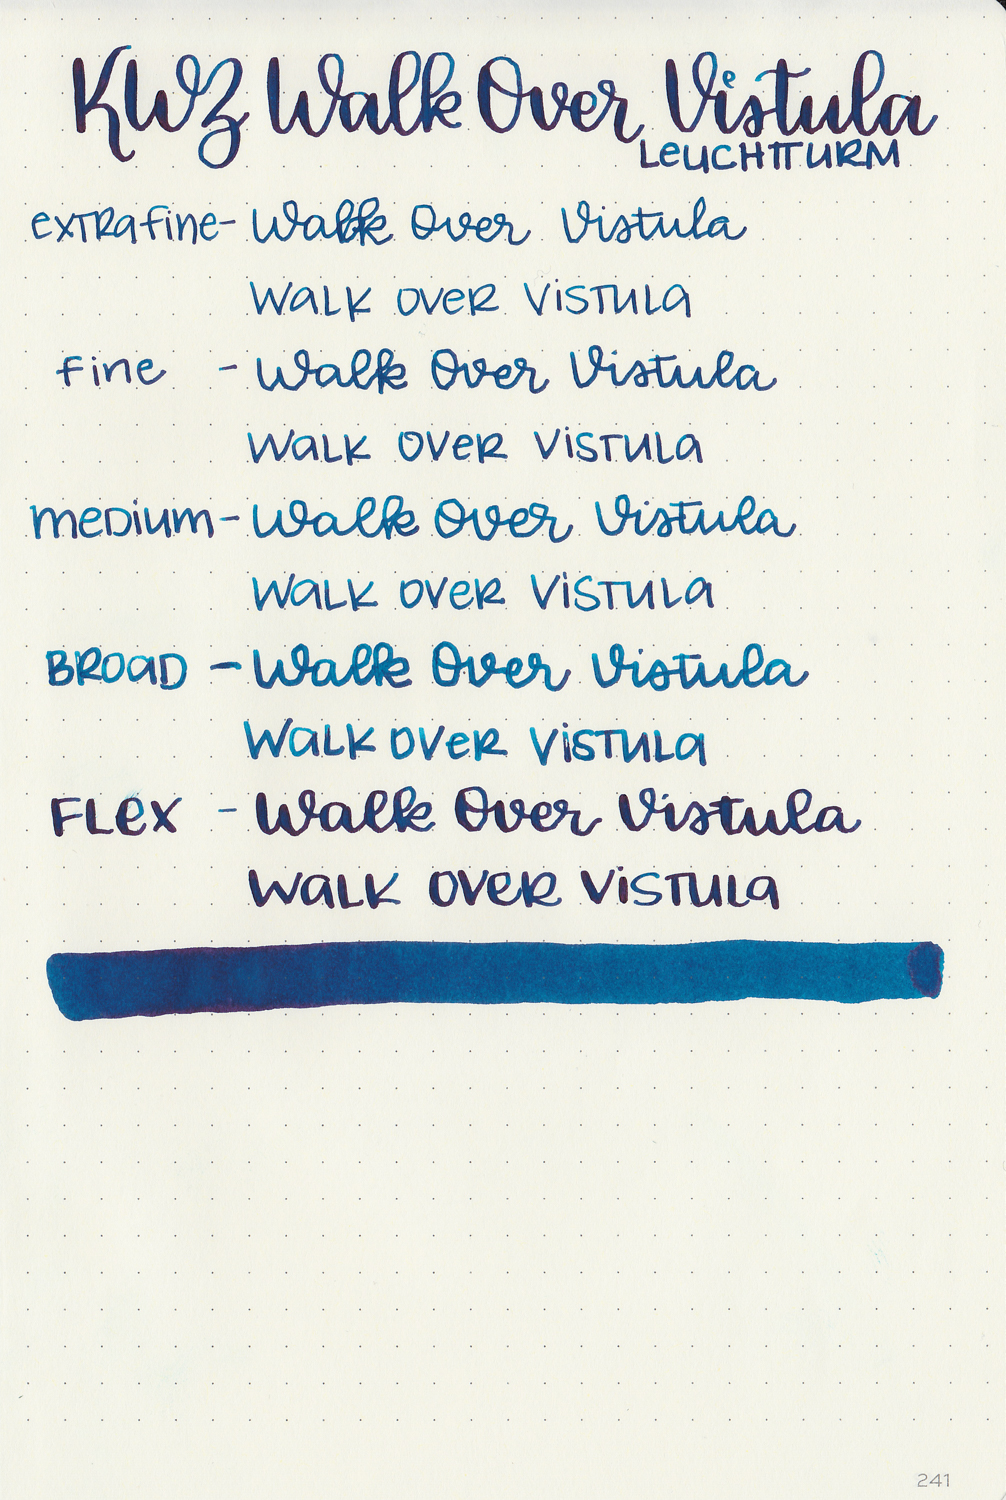 KWZ Walk Over Vistula
LEUCHTTURM
extrafine - Walk Over Vistula
WALK OVER VISTULA
fine - Walk Over Vistula
WALK OVER VISTULA
medium - Walk Over Vistula
WALK OVER VISTULA
BROAD - Walk Over Vistula
WALK OVER VISTULA
FLEX - Walk Over Vistula
WALK OVER VISTULA
241